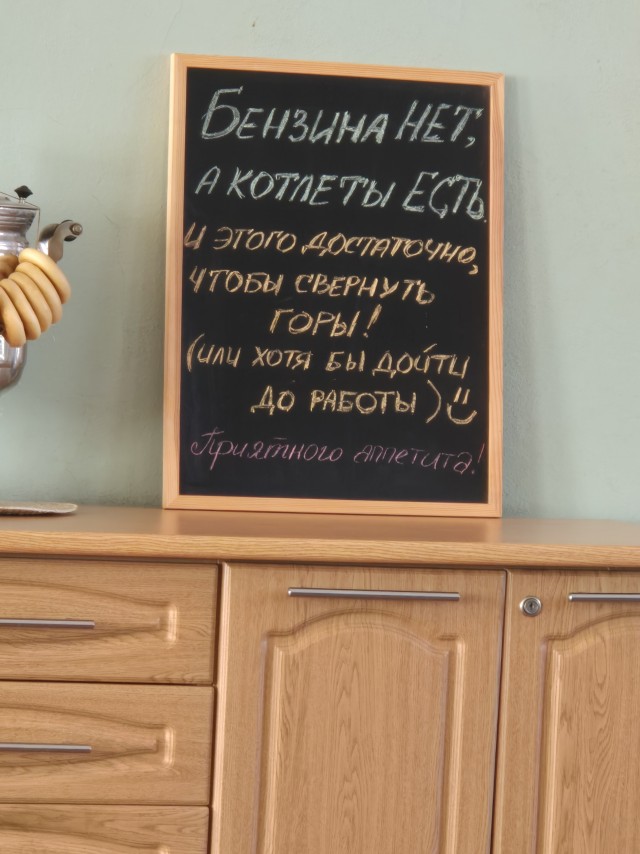 БЕНЗИНА НЕТ,
А КОТЛЕТЫ ЕСТЬ.
И ЭТОГО ДОСТАТОЧНО,
ЧТОБЫ СВЕРНУТЬ
ГОРЫ!
(ИЛИ ХОТЯ БЫ ДОЙТИ
ДО РАБОТЫ)
Приятного аппетита!